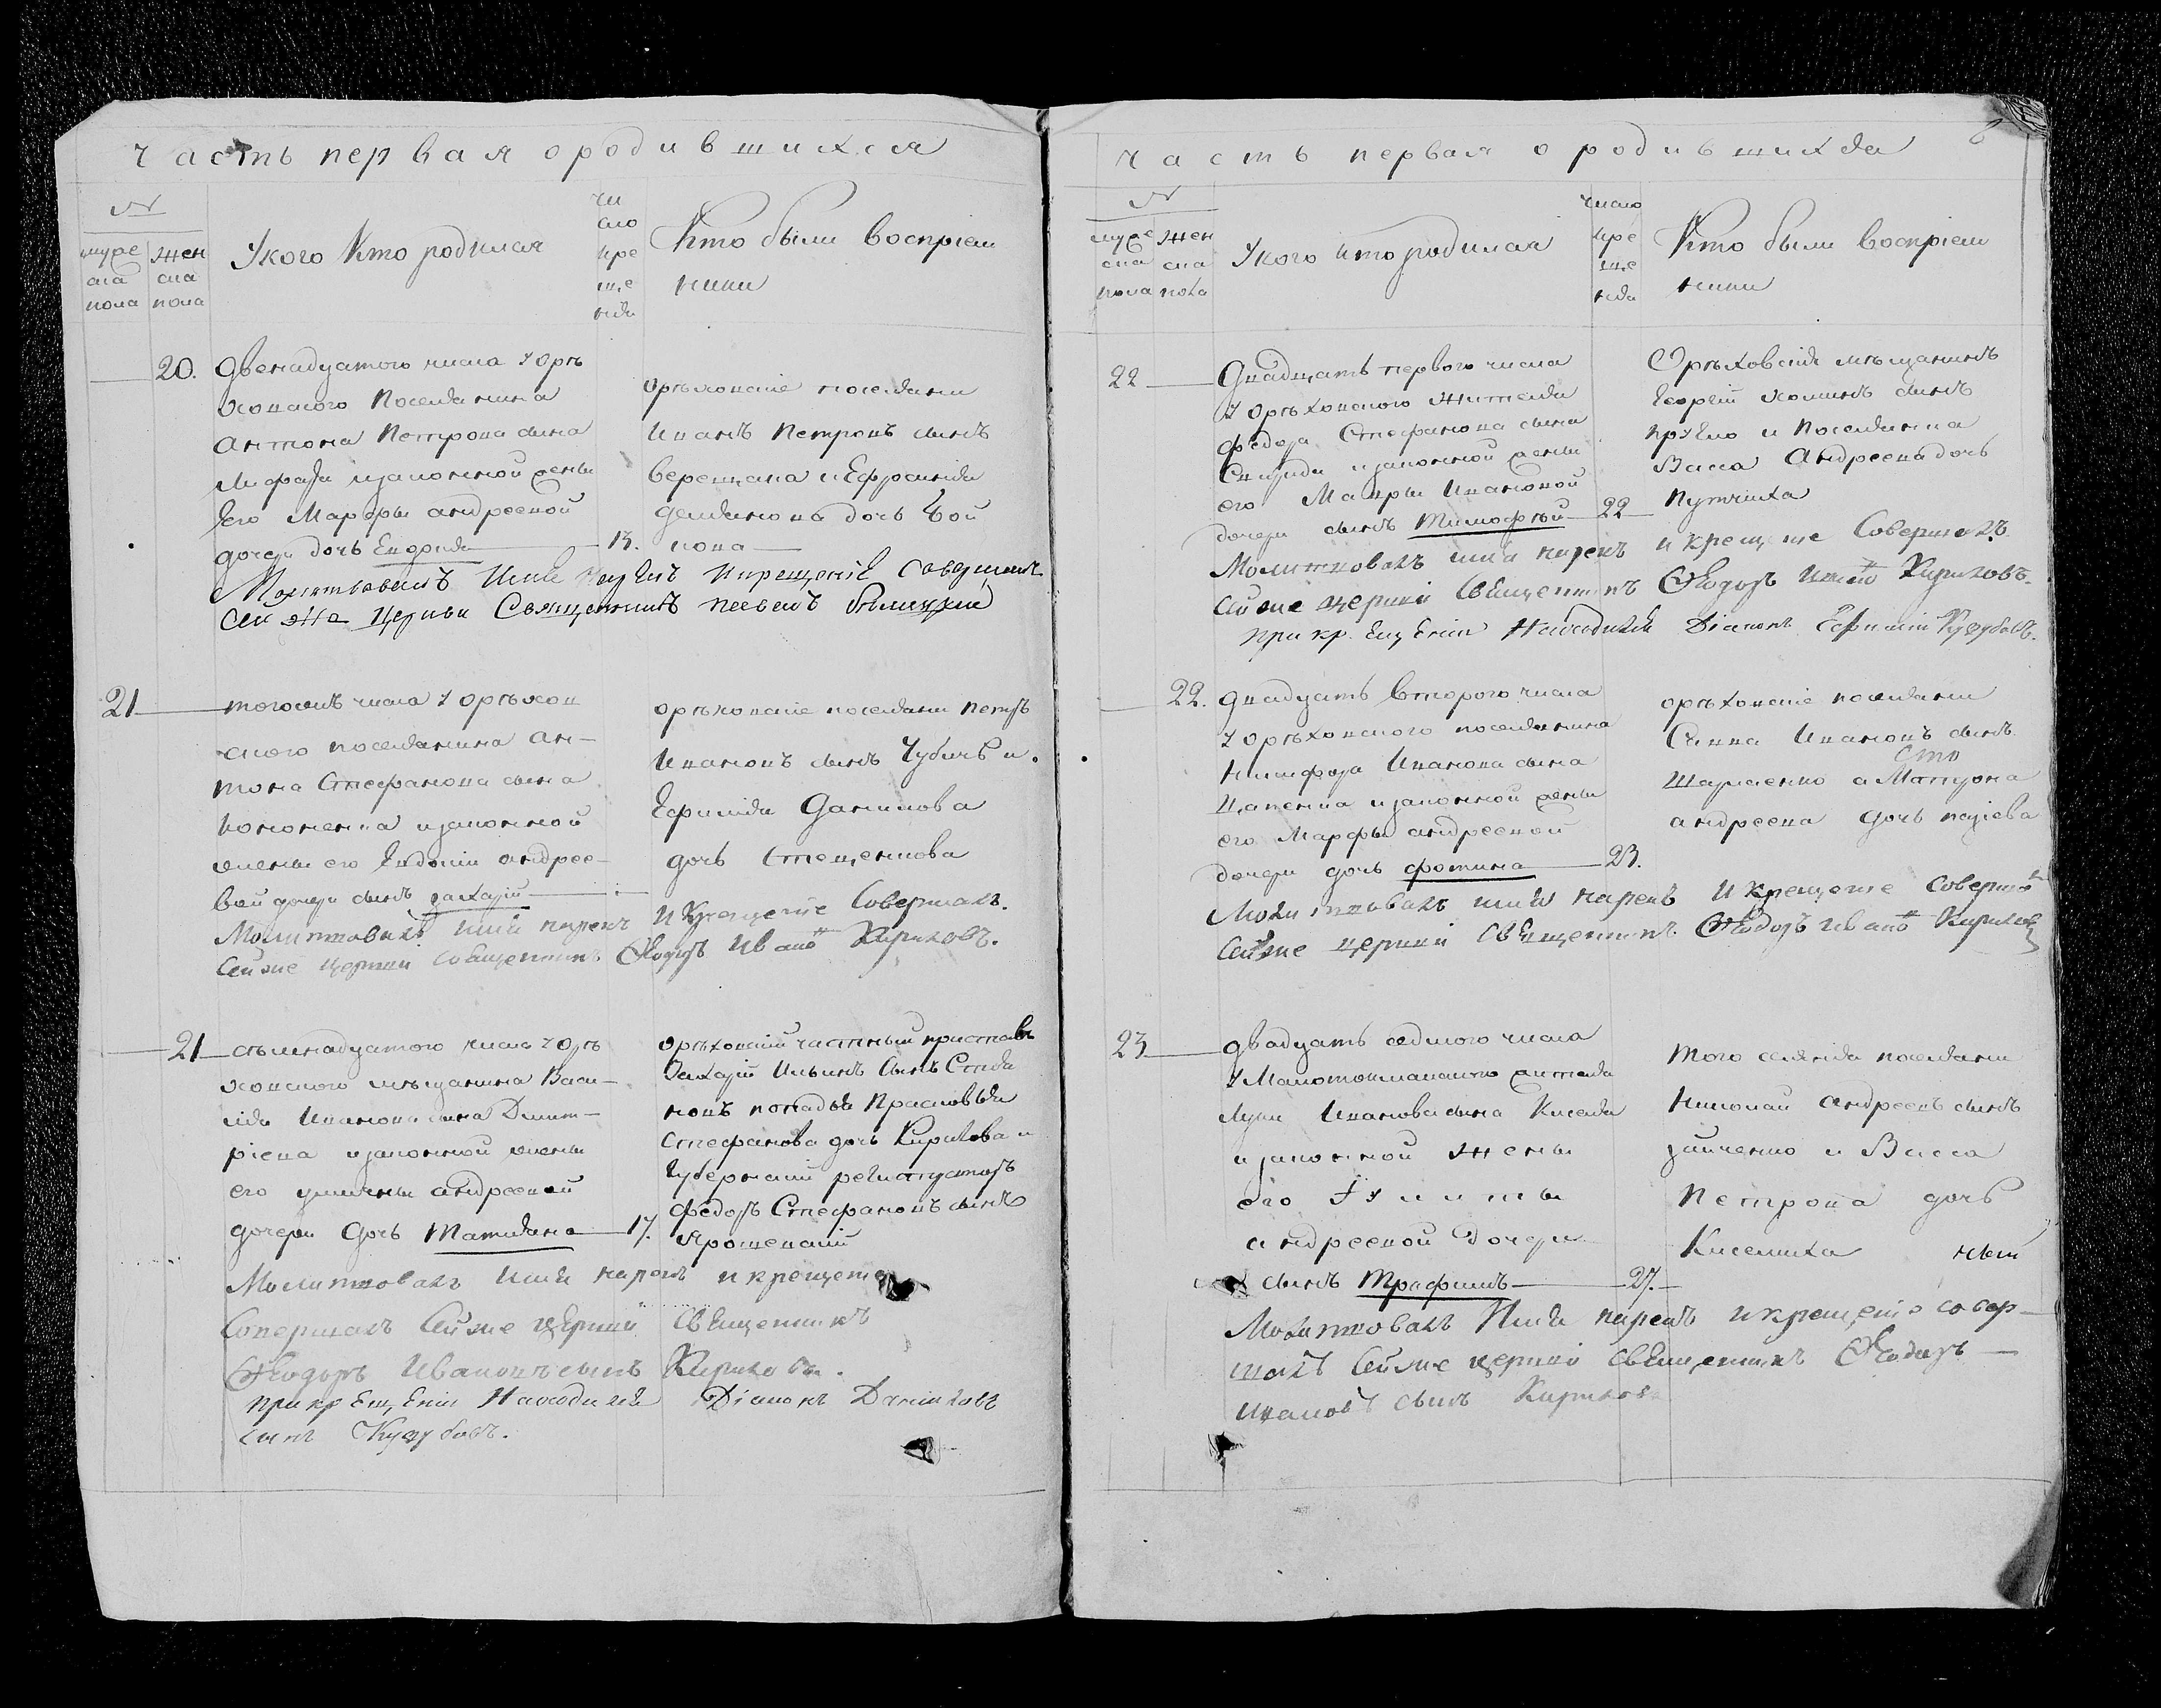 часть первая ородившихся
№
муже
ска
пола
жен
ска
пола
Укого Кто родился
чи
сло
кре
ще
нія
Кто были восприем
ники
20.
Двенадцатого числа У орѣ
ховского Поселянина
Антона Петрова сына
изаконной жены
Его Марфы андреевой
дочери дочь Евдокія
13.
орѣховскіе поселяни
Иванъ Петровъ сынъ
верещака и Ефросинія
Демянова дочь
Молитвовалъ Имя Нарекъ Икрещеніе Совершилъ
Сей жа Церкви Священникъ
21
тогожъ числа У орѣхов
ского поселянина Ан-
тона Стефанова сына
Кононенка изаконной
жены его Евдокіи андрее-
вой дочери сынъ захарій
орѣховскіе поселяни Петръ
Ивановъ сынъ Чубичъ и
Ефимія Данилова
дочь Стеценкова
Молитвовалъ имя нарекъ И Крещеніе Совершалъ.
Сей же церкви священникъ Ѳеодоръ Ивано Кириковъ.
21
сѣмнадцатого числа У Орѣ
ховского мѣщанина Васи-
лія Иванова сына Дмит-
ріева изаконной жены
его улияны андреевой
дочери Дочь Татияна
17.
Орѣховскій частный приставъ
Захарій Ильинъ Сынъ
попадья Прасковья
Стефанова дочь Кирикова и
Губернскій регистраторъ
Федоръ Стефановъ сынъ
Ярошевскій
Молитвовалъ Имя нарекъ и крещеніе
Совершалъ Сей же церкви Священникъ
Ѳеодоръ Ивановъ сынъ Кириковъ.
При крещеніи Находился Діаконъ
сынъ Кузубовъ.
часть первая о родившихся
6
№
муже
ска
пола
жен
ска
пола
Укого кто родился
число
кре
ще
нія
Кто были восприем
ники
22
Двадцать первого числа
У орѣховского жителя
Федора Стефанова сына
изаконной жены
его Мавры Ивановой
дочери сынъ Тимофѣй
22
Орѣховскія мѣщанинъ
Георгій Фоминъ сынъ
и Поселянка
Васса Андреева дочь
Молитвовалъ имя нарекъ и крещеніе Совершалъ
Сей же церкви Священникъ Ѳеодоръ Ивано Кириковъ.
При крещеніи Находился Діаконъ Ефимій Кузубовъ.
22.
двадцать Второго числа
У орѣховского поселянина
Никифора Иванова сына
Цапенка изаконной жены
его Марфы андреевой
дочери дочь фотина
23.
орѣховскіе поселяни
Савва Ивановъ сынъ
а Матрона
андреева дочь
Молитвовалъ имя нарекъ И Крещеніе Соверша
Сей же церкви Священникъ Ѳеодоръ Ивано Кириковъ
23
двадцать седмого числа
У Малотокмацкого жителя
Луки Иванова сына Киселя
изаконной жены
его
андреевой Дочери
сынъ Трафимъ
27.
того селенія поселяни
Николай Андреевъ сынъ
зайченко и Васса
Петрова дочь
Киселиха
Молитвовалъ Имя нарекъ икрещеніе совер-
шалъ Сей же церкви Священникъ Ѳеодоръ
Ивановъ сынъ Кириковъ